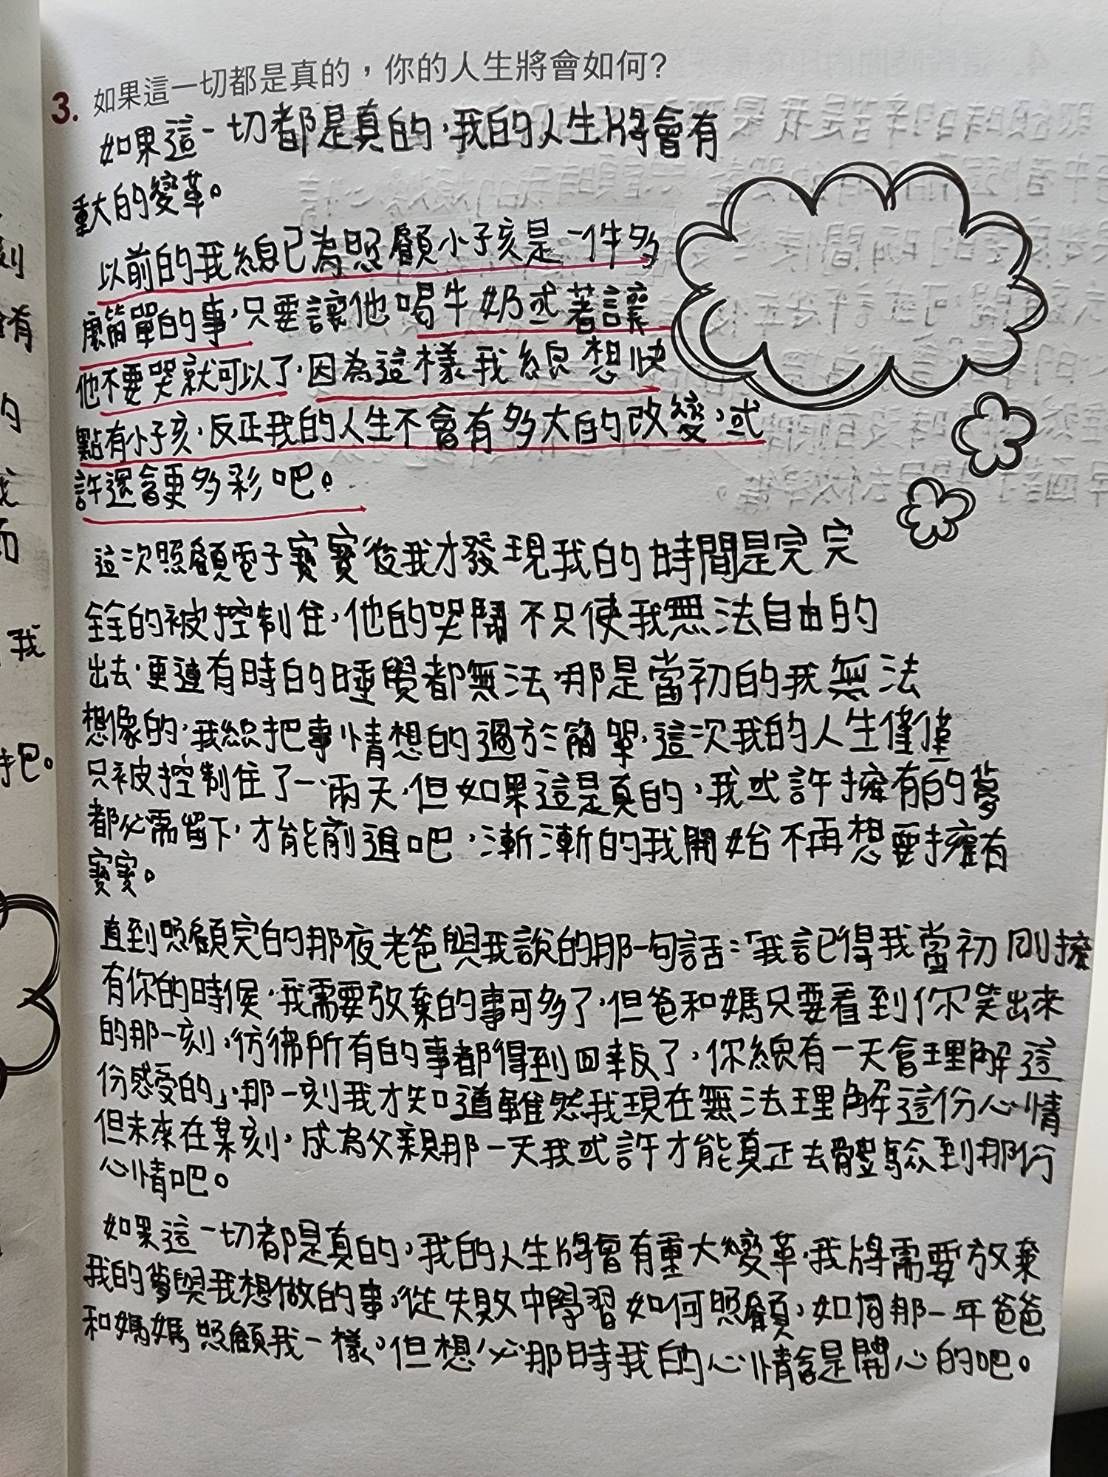 3. 如果這一切都是真的,你的人生將會如何?
如果這一切都是真的,我的人生將會有
重大的變革。
以前的我總已為照顧小孩是一件多
麼簡單的事,只要讓他喝牛奶或著讓
他不要哭就可以了,因為這樣我總想快
點有小孩,反正我的人生不會有多大的改變,或
許還會更多彩吧。
這次照顧電子寶寶後我才發現我的時間是完完
全的被控制住,他的哭鬧不只使我無法自由的
出去,更連有時的睡覺都無法,那是當初的我無法
想像的,我總把事情想的過於簡單,這次我的人生僅僅
只被控制住了一兩天,但如果這是真的,我或許擁有的夢
都必需留下,才能前進吧,漸漸的我開始不再想要擁有
寶寶。
直到照顧完的那夜老爸與我說的那一句話:「我記得我當初剛擁
有你的時候,我需要放棄的事可多了,但爸和媽只要看到你笑出來
的那一刻,彷彿所有的事都得到回報了,你總有一天會理解這
份感受的」,那一刻我才知道雖然我現在無法理解這份心情
但未來在某刻,成為父親那一天我或許才能真正去體驗到那份
心情吧。
如果這一切都是真的,我的人生將會有重大變革,我將需要放棄
我的夢與我想做的事,從失敗中學習如何照顧,如同那一年爸爸
和媽媽照顧我一樣,但想必那時我的心情會是開心的吧。